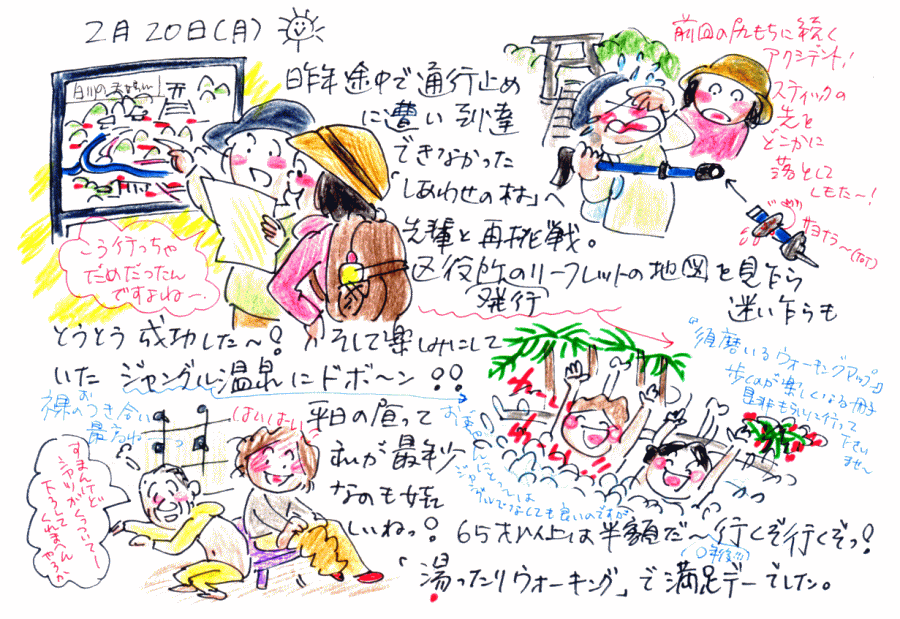 2月20日(月)
白川の
昨年途中で通行止め
に遭い到達
できなかった
「しあわせの村」へ
先輩と再挑戦。
区役所のリーフレットの地図を見ながら
発行
迷いながらも
とうとう成功した〜！そして楽しみにして
いたジャングル温泉にドボ〜ン！！
平日の昼って
私が最年少
なのも嬉
しいねっ！
65才以上は半額だ〜行くぞ行くぞっ！
「湯ったりウォーキング」で満足デーでした。
前回の尻もちに続く
アクシデント！
スティックの
先を
どこかに
落として
しもた〜！
サヨナラ〜(ToT)
こう行っちゃ
だめだったん
ですよね〜。
"須磨いるウォーキングマップ"
歩くのが楽しくなる冊子
是非もらいに行って
下さい
ませ〜
裸のつき合い
最高ね
はいはーい
すまんけど